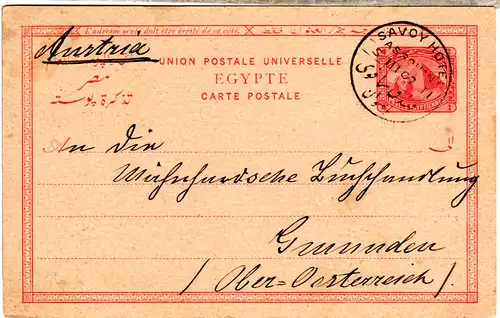 L'adresse seule doit être écrite de ce côté.
Austria
UNION POSTALE UNIVERSELLE
EGYPTE
CARTE POSTALE
مصر
تذكرة بوسته
SAVOY HOTEL
An die
Buchhandlung
Gmunden
(Ober=Oesterreich).